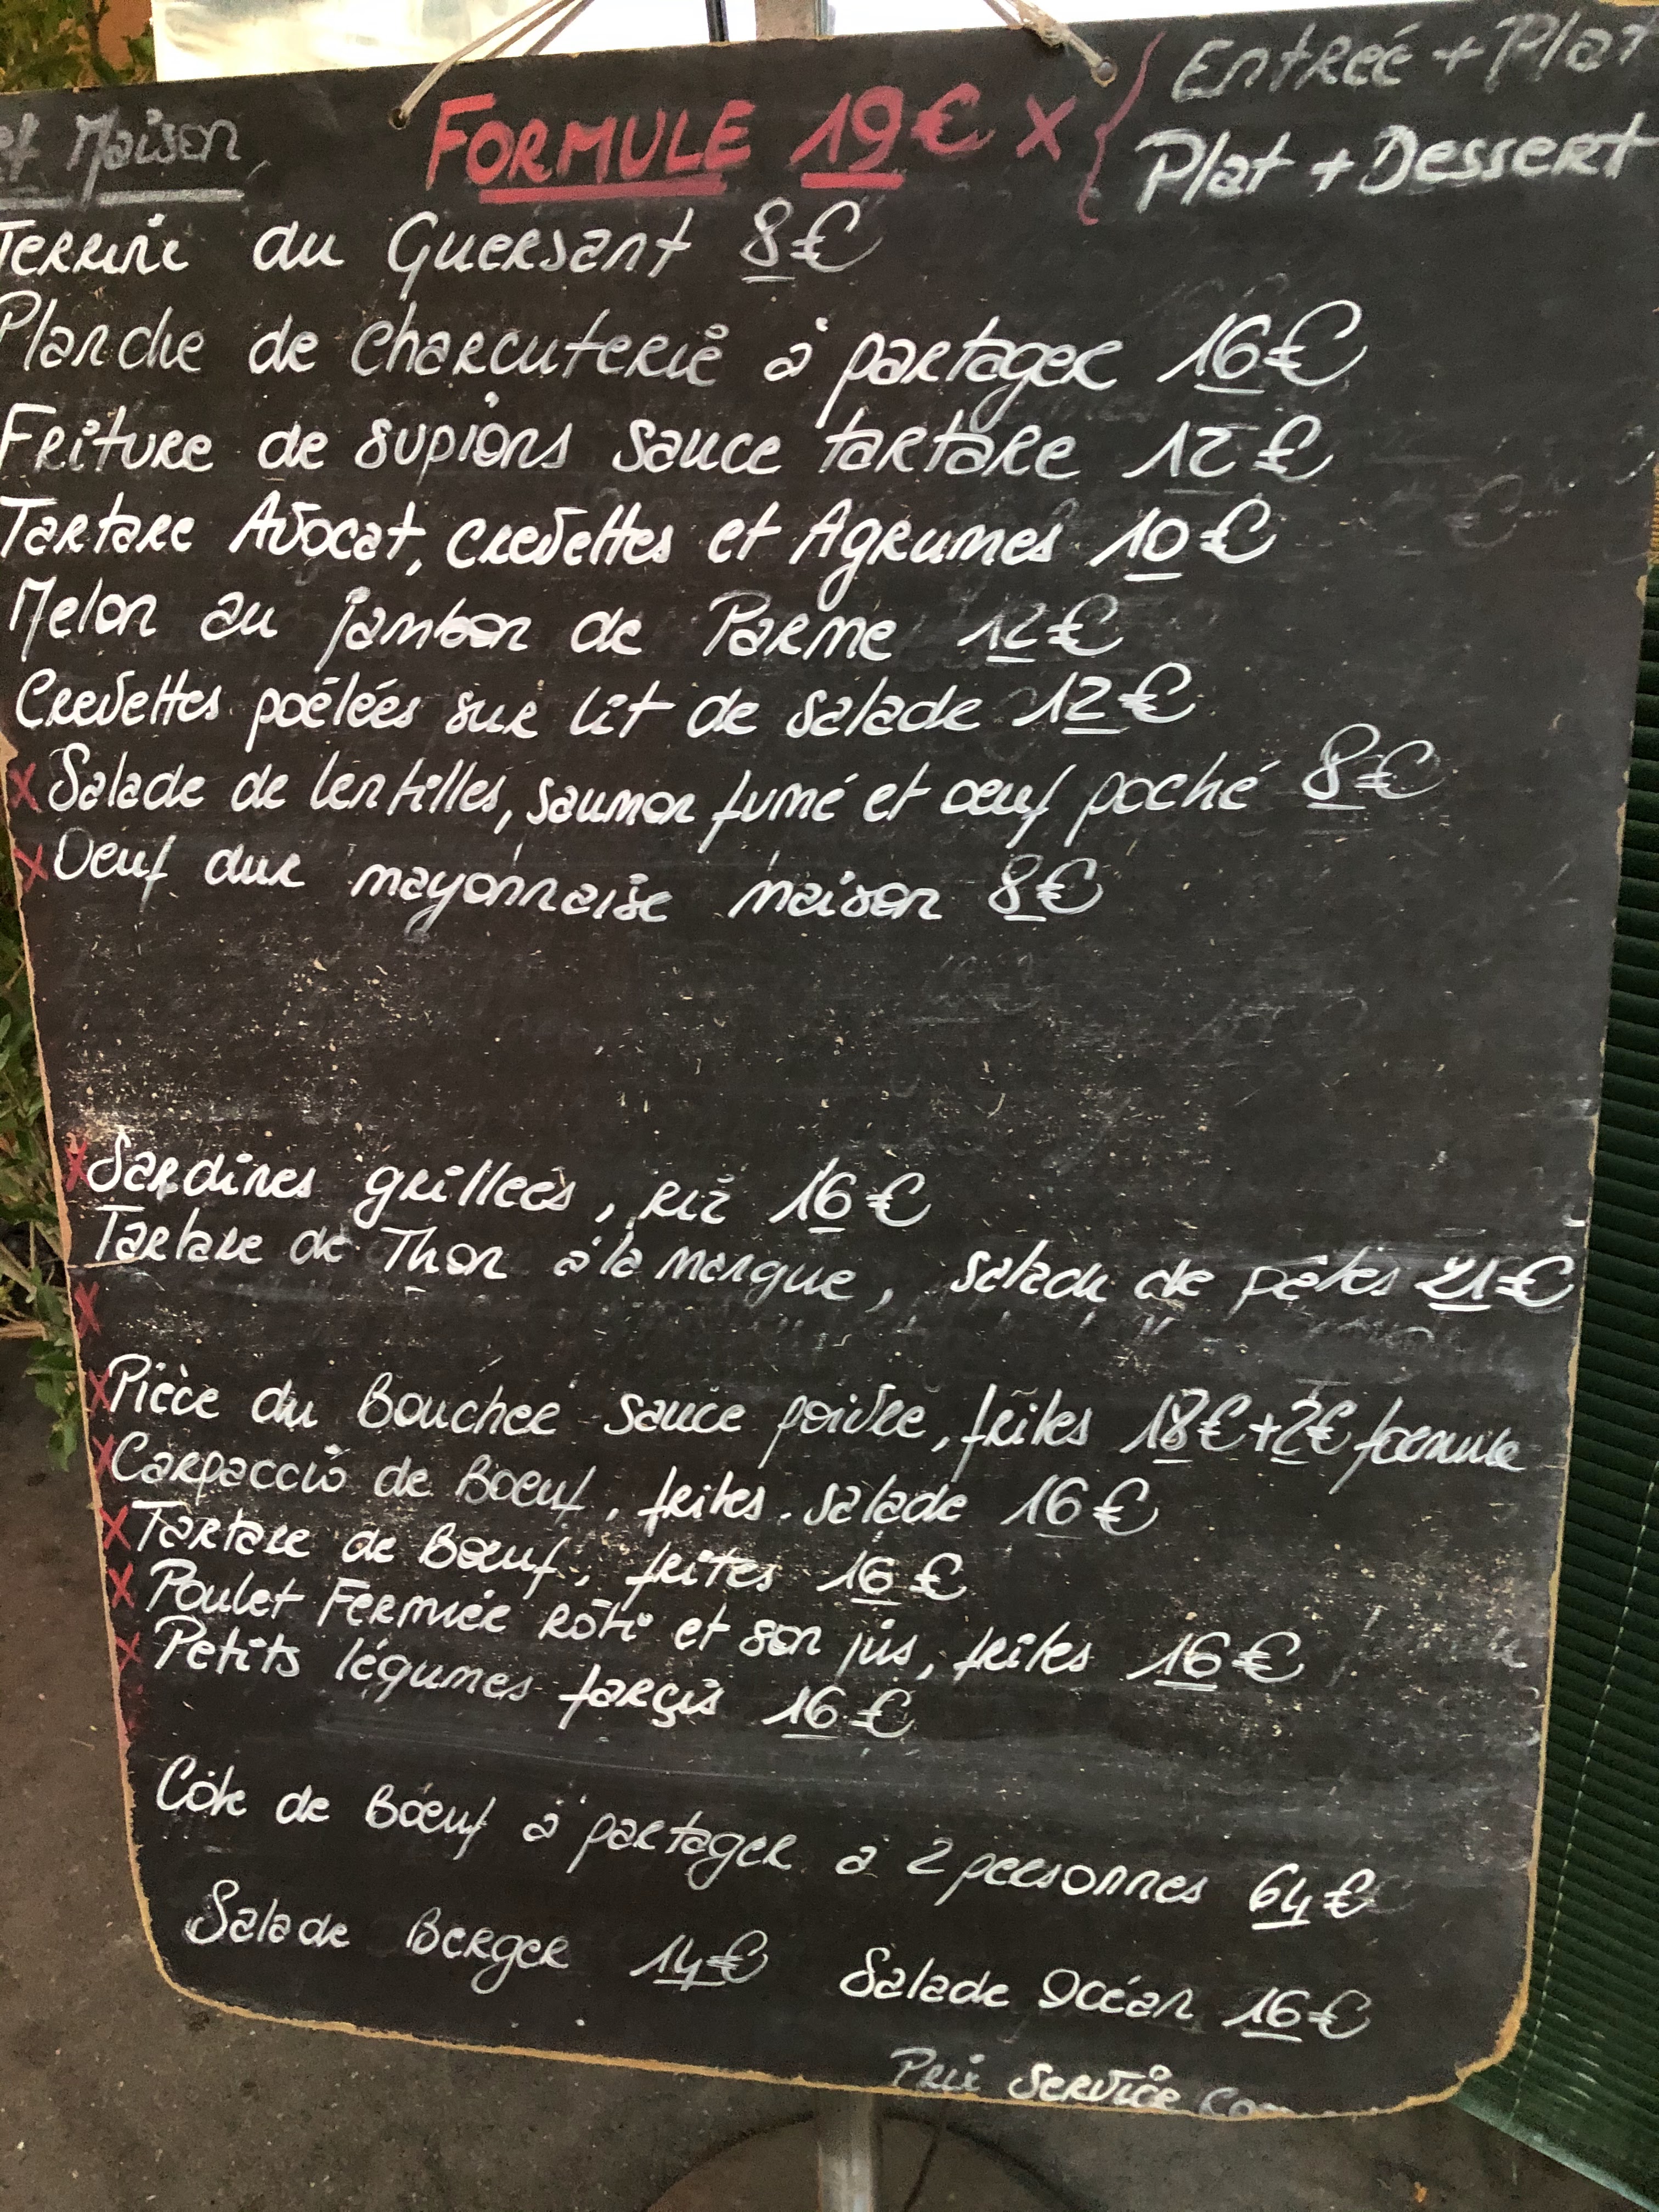 et Maison
FORMULE 19€ X { Entrée + Plat
Plat + Dessert
Terrine du Guersant 8€
Planche de charcuterie à partager 16€
Friture de supions sauce tartare 12€
Tartare Avocat, crevettes et Agrumes 10€
Melon au jambon de Parme 12€
Crevettes poêlées sur lit de salade 12€
X Salade de lentilles, saumon fumé et oeuf poché 8€
X Oeuf dur mayonnaise maison 8€
X Sardines grillées, riz 16€
Tartare de Thon à la mangue, salade de pâtes 21€
X
X Pièce du Boucher sauce poivre, frites 18€+2€ formule
X Carpaccio de Boeuf, frites. salade 16€
X Tartare de Bœuf, frites 16€
X Poulet Fermier rôti et son jus, frites 16€
X Petits légumes farçis 16€
Côte de Bœuf à partager à 2 personnes 64€
Salade Berger 14€ Salade Océan 16€
Prix Service